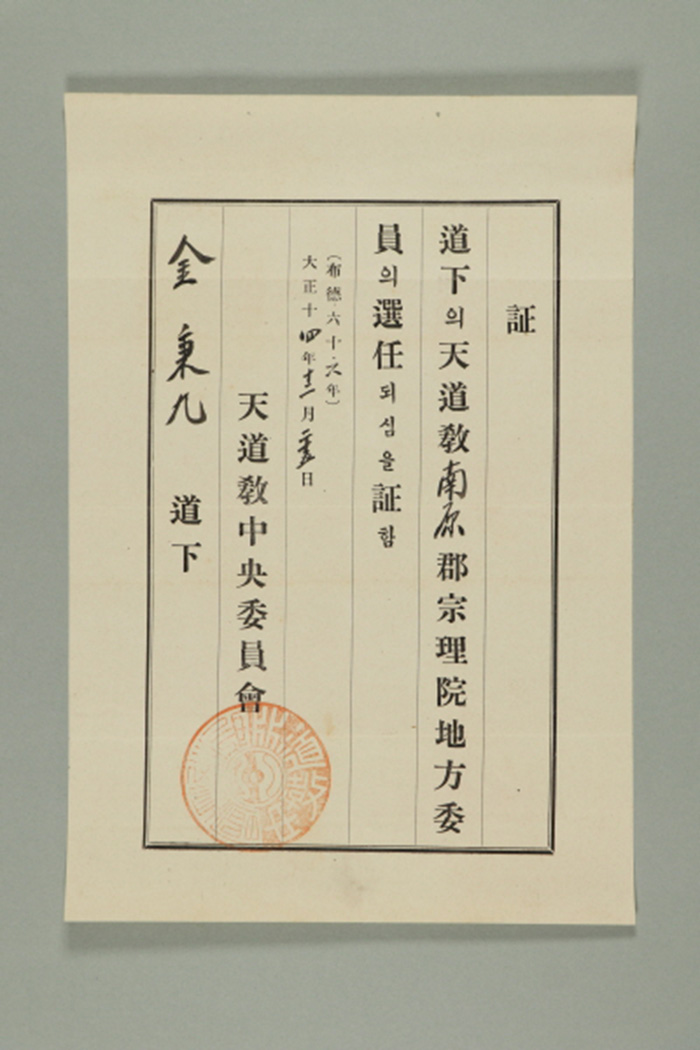 証
道下의天道敎南原郡宗理院地方委
員의選任되심을証함
(布德六十六年)
大正十四年十二月二十五日
天道敎中央委員會
金秉九 道下